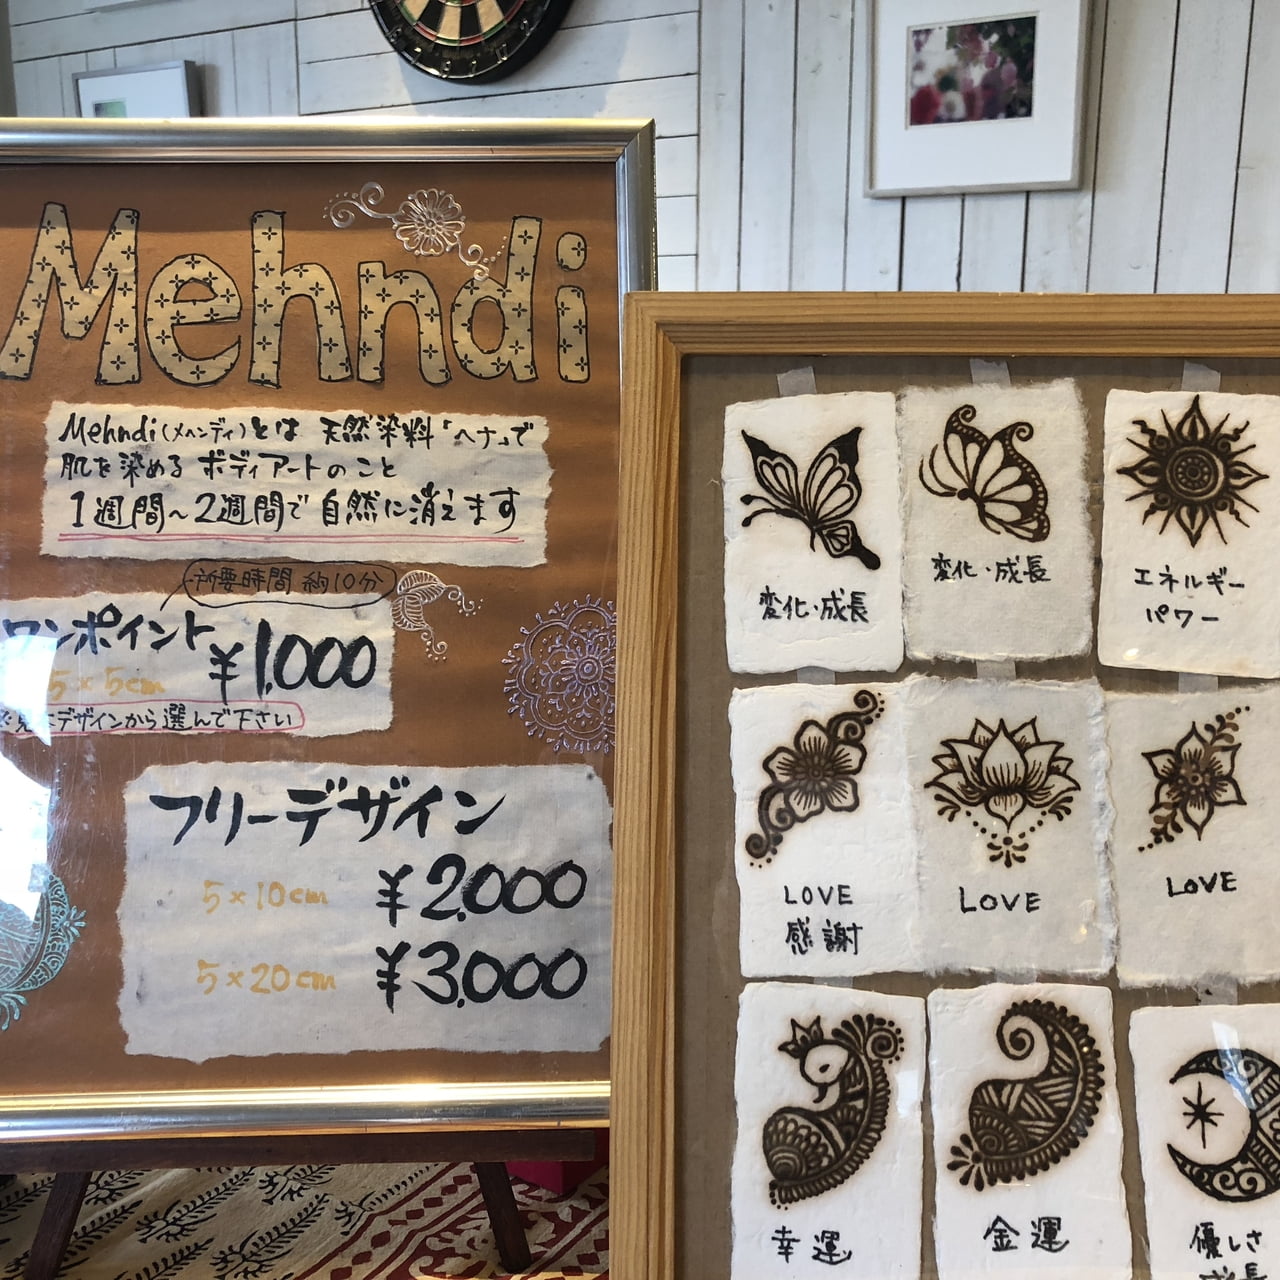 Mehndi
Mehndi(メヘンディ)とは 天然染料「ヘナ」で
肌を染める ボディアートのこと
1週間～2週間で自然に消えます
所要時間 約10分
ワンポイント ¥1,000
5×5cm
見本デザインから選んで下さい
フリーデザイン
5×10cm ¥2,000
5×20cm ¥3,000
変化・成長
変化・成長
エネルギー
パワー
LOVE
感謝
LOVE
LOVE
幸運
金運
優しさ
成長